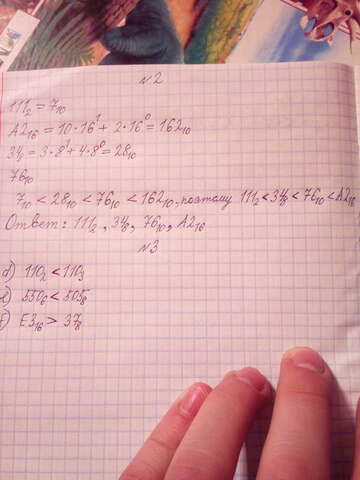 №2
111₂ = 7₁₀
A2₁₆ = 10·16¹ + 2·16⁰ = 162₁₀
34₈ = 3·8¹ + 4·8⁰ = 28₁₀
76₁₀
7₁₀ < 28₁₀ < 76₁₀ < 162₁₀, поэтому 111₂ < 34₈ < 76₁₀ < A2₁₆
Ответ: 111₂, 34₈, 76₁₀, A2₁₆
№3
d) 110₂ < 110₃
e) 550₆ < 505₈
f) E3₁₆ > 37₈